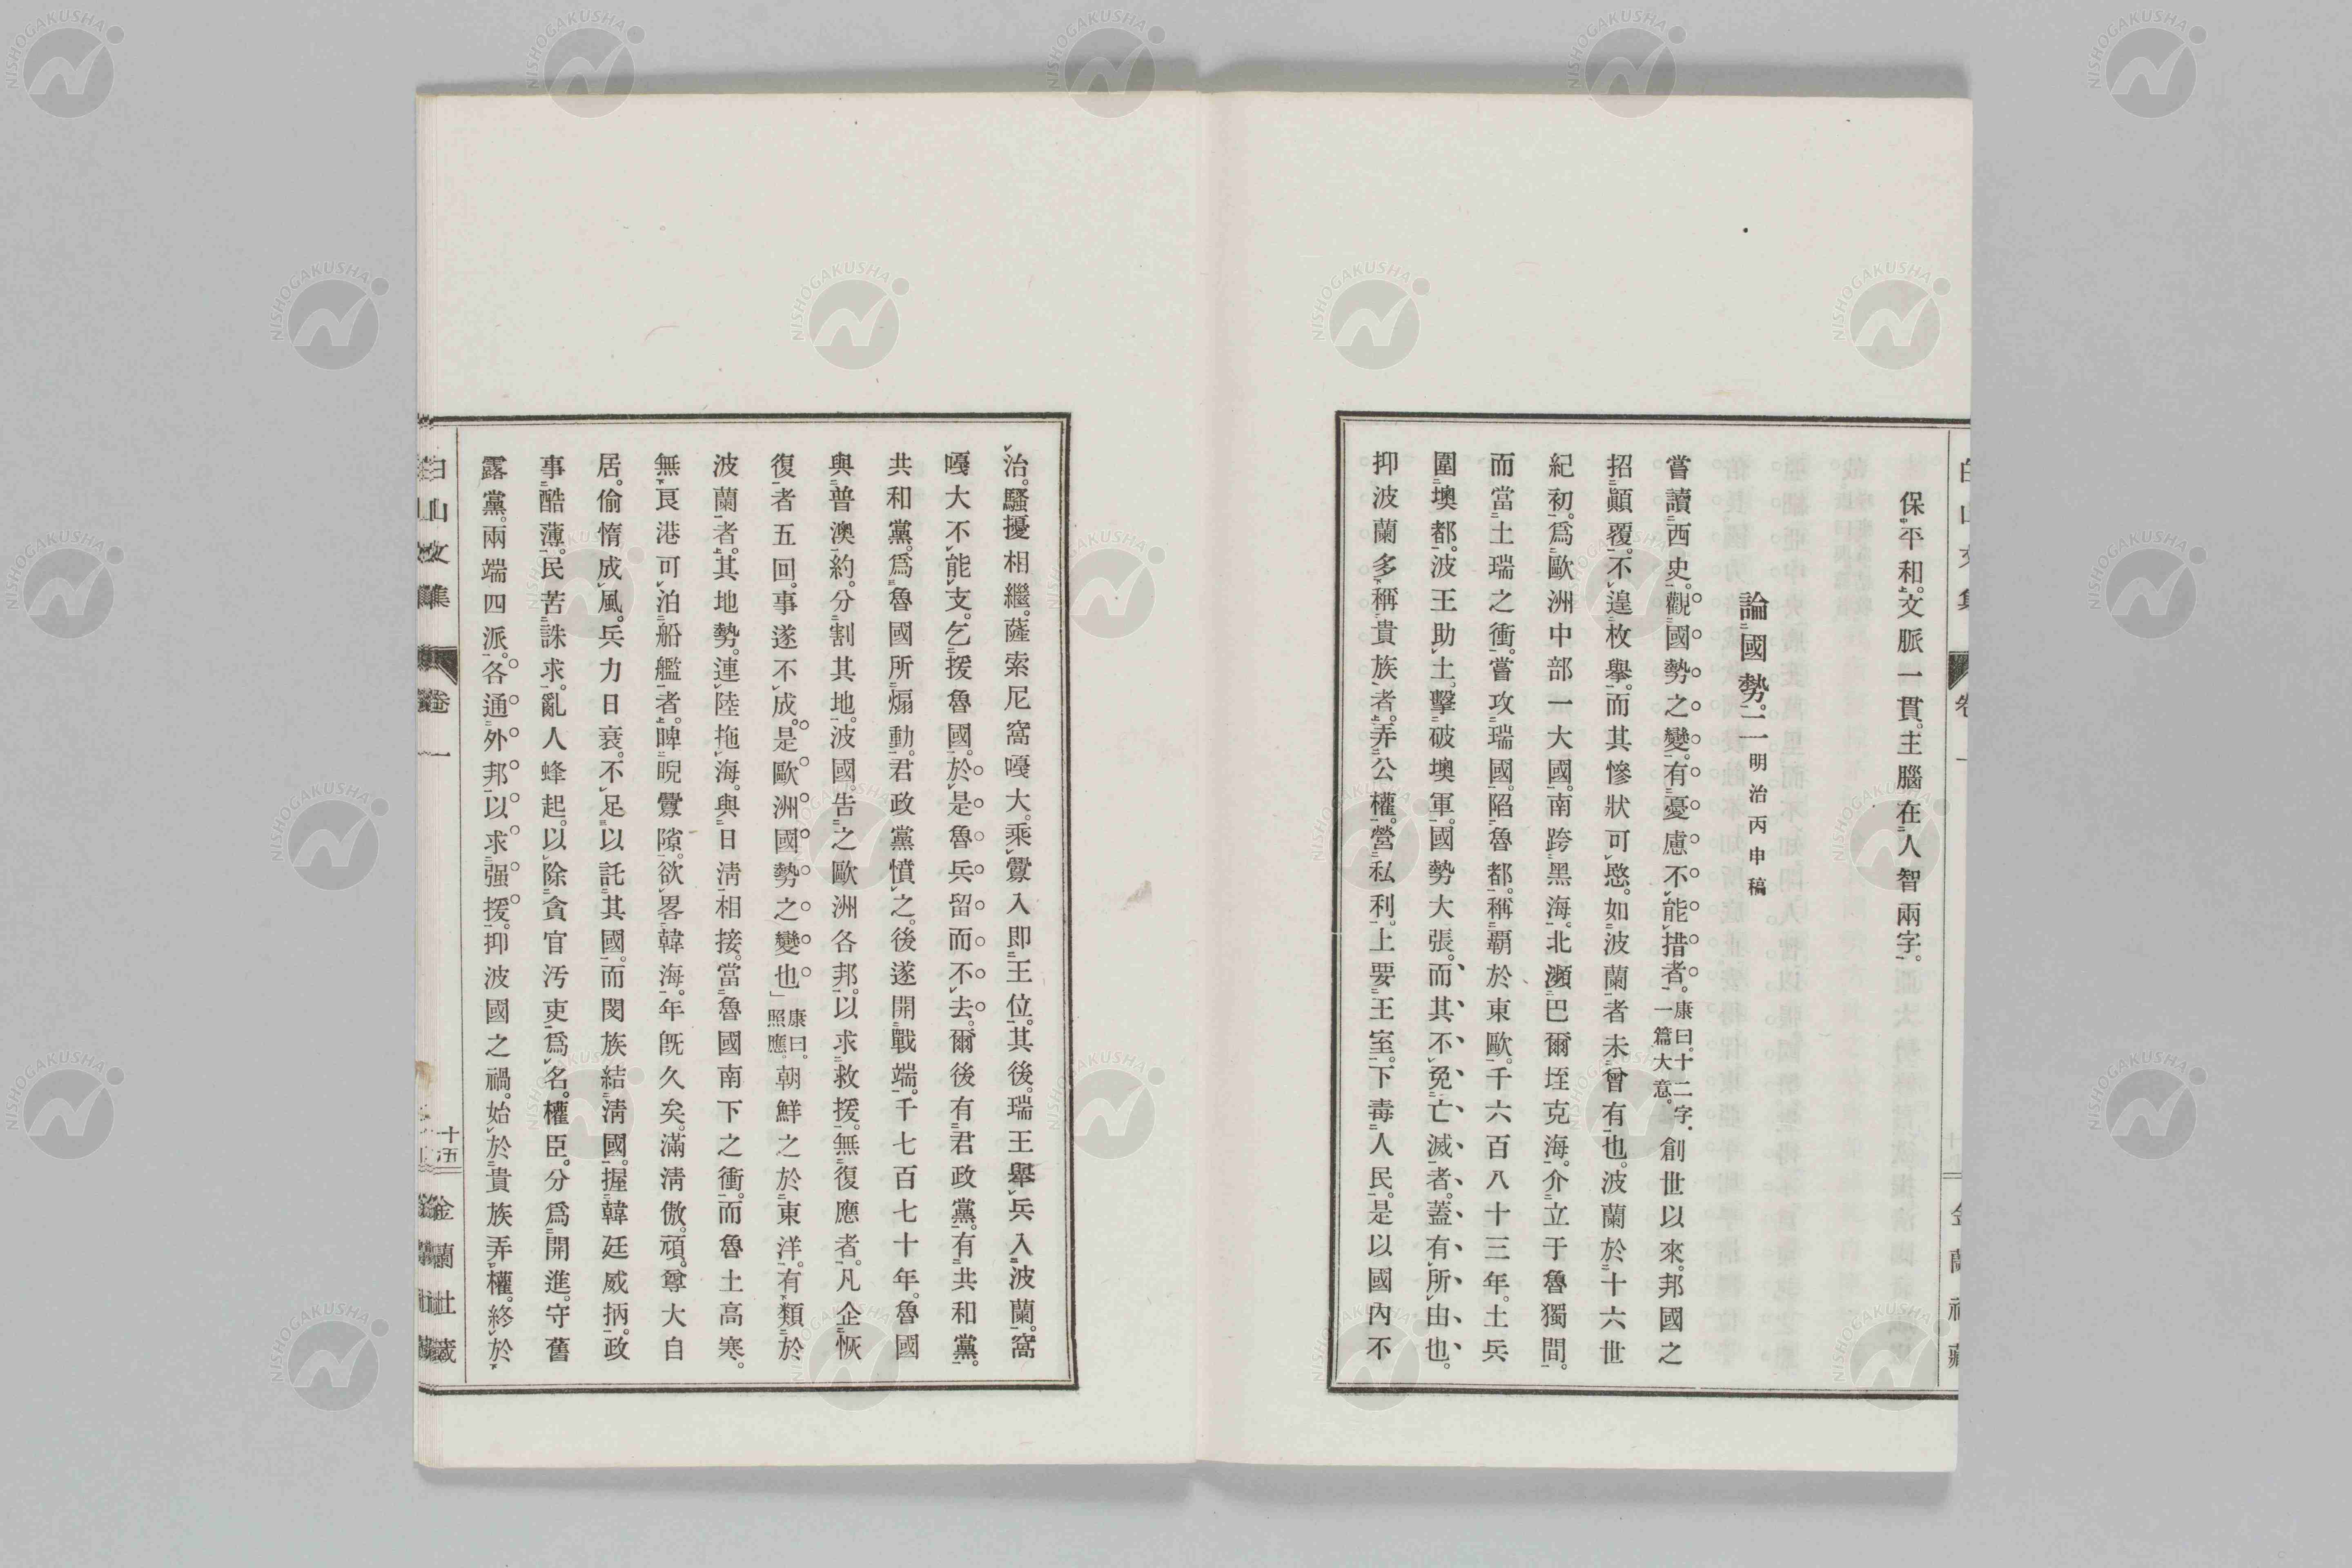 保平和。文脈一貫。主腦在人智兩字。
論國勢。二 明治丙申稿
嘗讀西史。觀國勢之變。有憂慮不能措者。康曰。十二字。一篇大意。創世以來。邦國之
招顚覆。不遑枚擧。而其慘狀可愍。如波蘭者未曾有也。波蘭於十六世
紀初。爲歐洲中部一大國。南跨黑海。北瀕巴爾垤克海。介立于魯獨間。
而當土瑞之衝。嘗攻瑞國。陷魯都。稱覇於東歐。千六百八十三年。土兵
圍墺都。波王助土。擊破墺軍。國勢大張。而其不免亡滅者。蓋有所由也。
抑波蘭多稱貴族者。弄公權。營私利。上要王室。下毒人民。是以國內不
治。騷擾相繼。薩索尼窩嘎大。乘釁入卽王位。其後。瑞王擧兵入波蘭。窩
嘎大不能支。乞援魯國。於是魯兵留而不去。爾後有君政黨。有共和黨。
共和黨。爲魯國所煽動。君政黨憤之。後遂開戰端。千七百七十年。魯國
與普澳約。分割其地。波國。告之歐洲各邦。以求救援。無復應者。凡企恢
復者五回。事遂不成。是歐洲國勢之變也」康曰。照應。朝鮮之於東洋。有類於
波蘭者。其地勢。連陸拖海。與日淸相接。當魯國南下之衝。而魯土高寒。
無良港可泊船艦者。睥睨釁隙。欲畧韓海。年旣久矣。滿淸傲。頑。尊大自
居。偷惰成風。兵力日衰。不足以託其國。而閔族結淸國。握韓廷威抦。政
事酷薄。民苦誅求。亂人蜂起。以除貪官汚吏爲名。權臣。分爲開進。守舊
露黨。兩端四派。各通外邦。以求强援。抑波國之禍。始於貴族弄權。終於
白山文集 卷一
十五 金蘭社藏